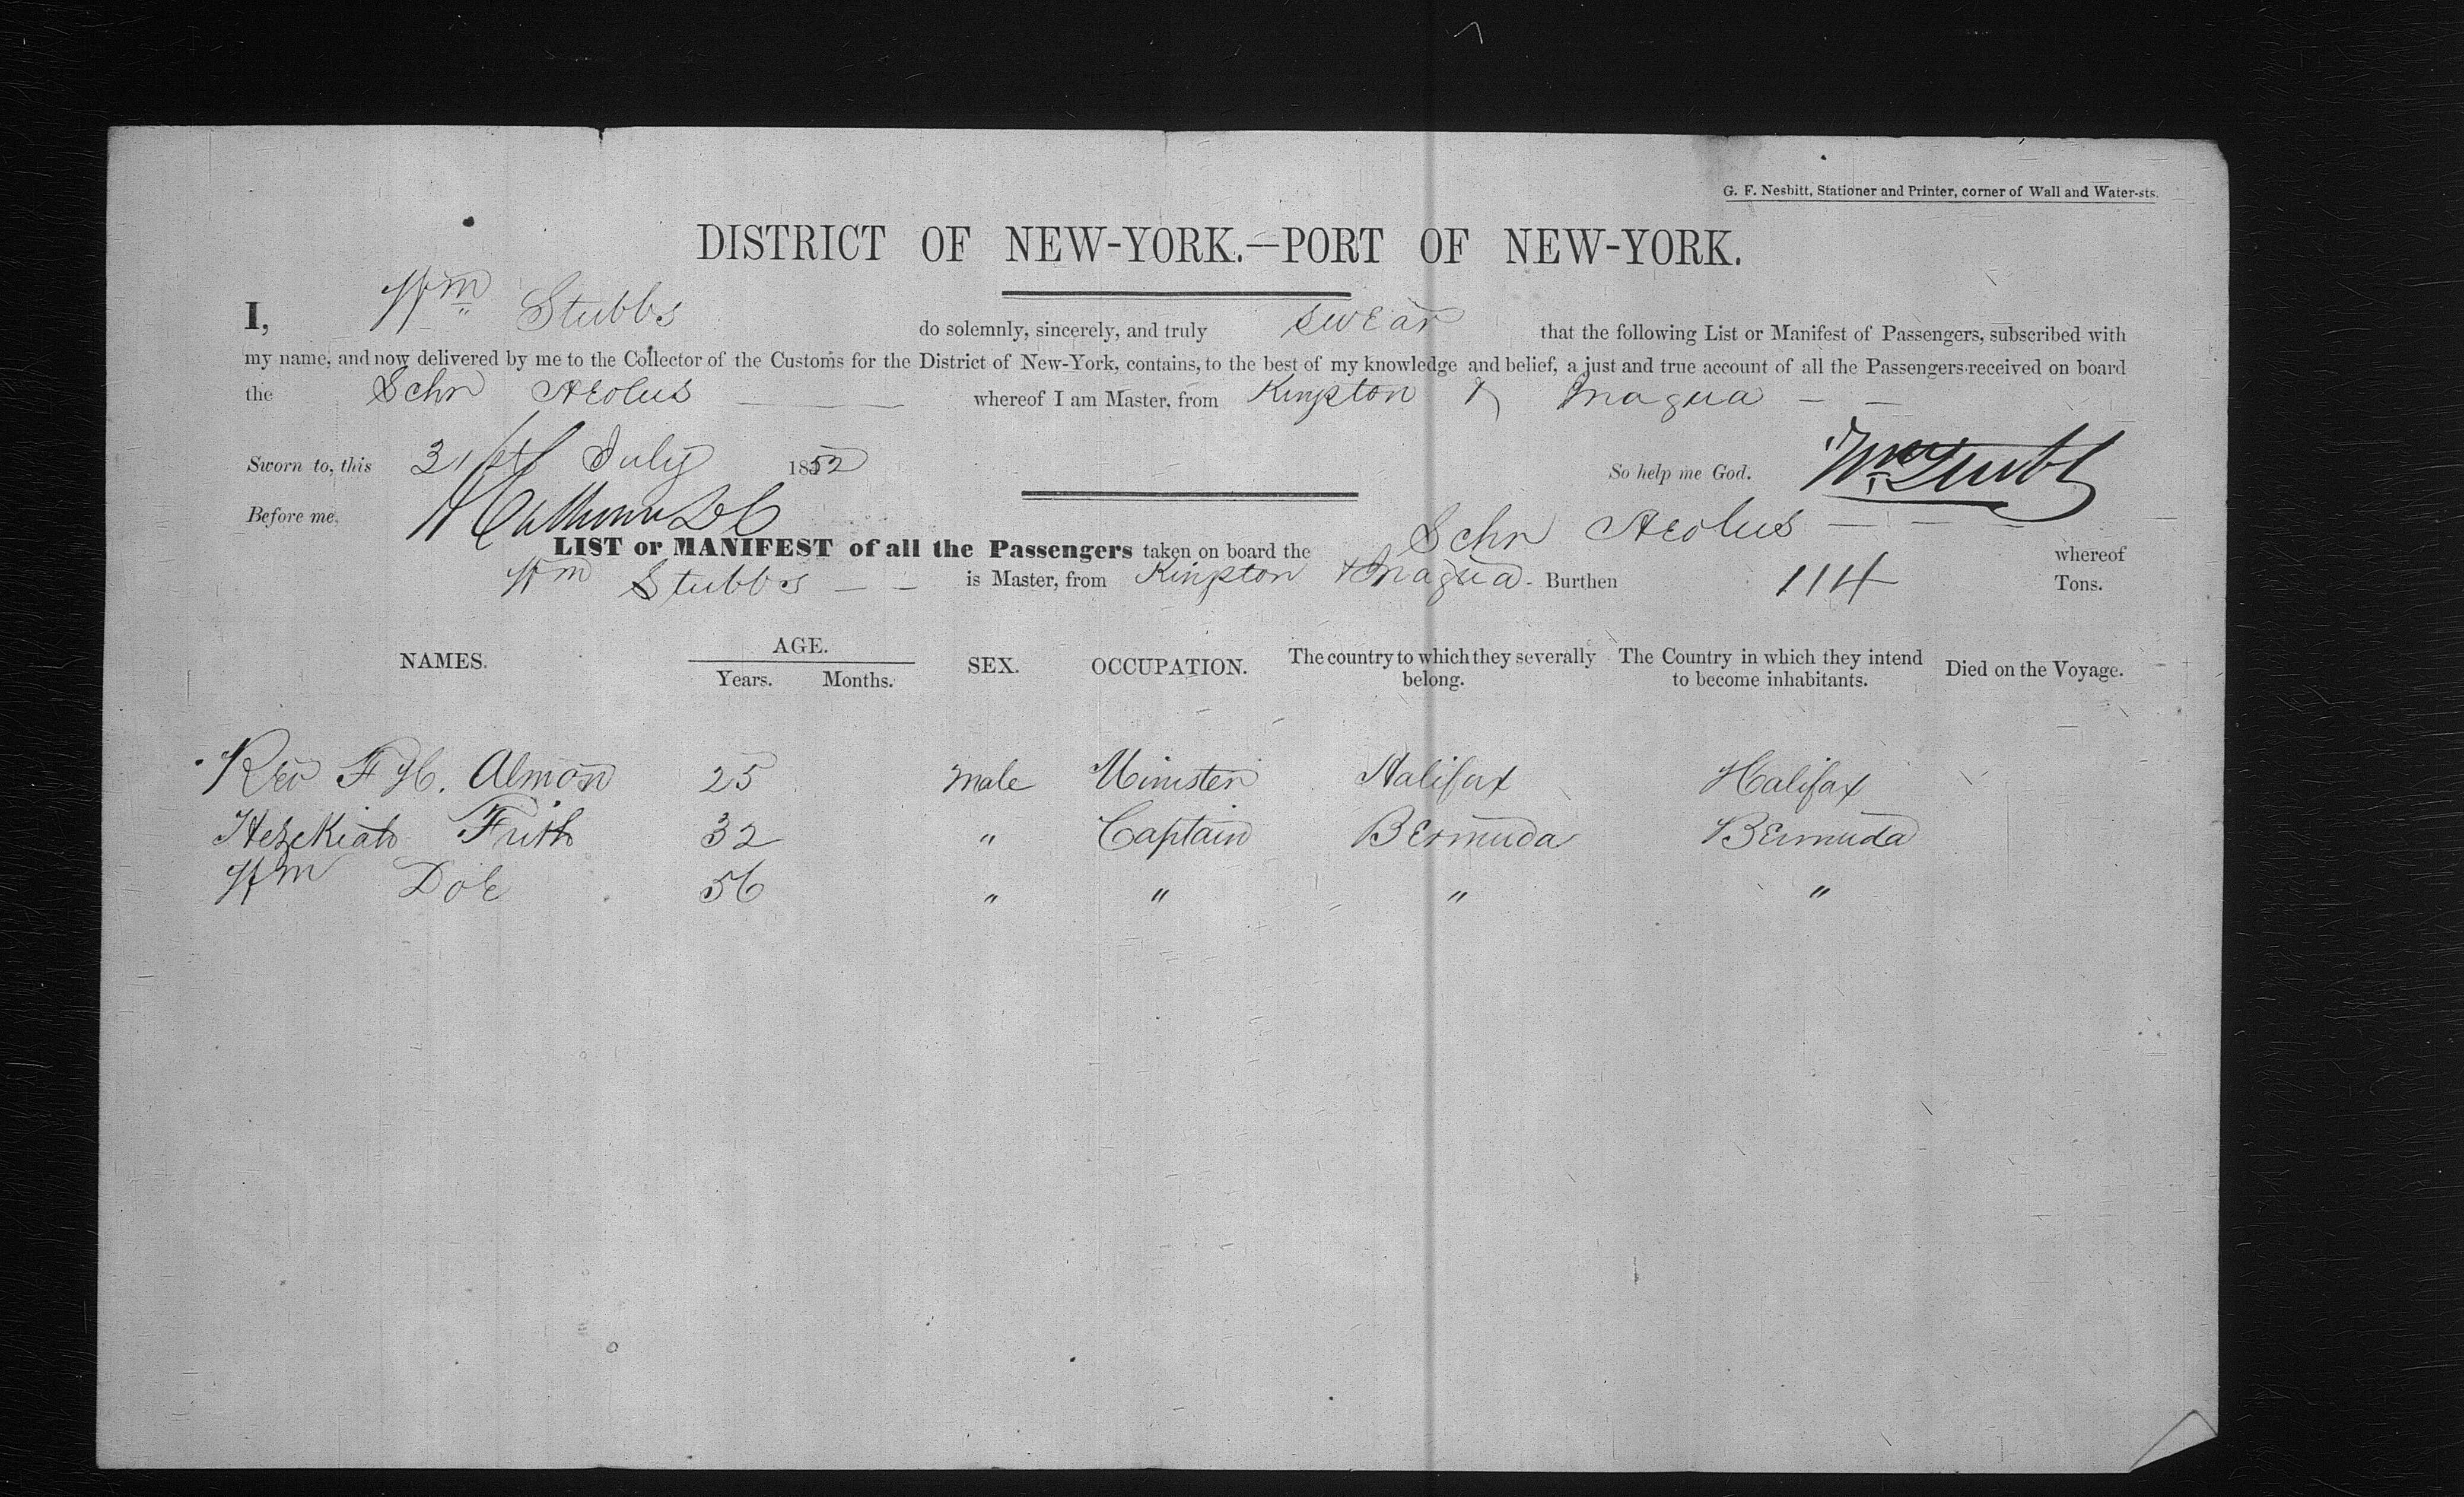 G. F. Nesbitt, Stationer and Printer, corner of Wall and Water-sts.
DISTRICT OF NEW-YORK.—PORT OF NEW-YORK.
I, Wm Stubbs do solemnly, sincerely, and truly swear that the following List or Manifest of Passengers, subscribed with
my name, and now delivered by me to the Collector of the Customs for the District of New-York, contains, to the best of my knowledge and belief, a just and true account of all the Passengers received on board
the Schr Aeolus whereof I am Master, from Kingston & Inagua
Sworn to, this 31st July 1852 So help me God. Wm Stubbs
Before me,
LIST or MANIFEST of all the Passengers taken on board the Schr Aeolus whereof
Wm Stubbs is Master, from Kingston & Inagua Burthen 114 Tons.
NAMES. AGE. Years. Months. SEX. OCCUPATION. The country to which they severally belong. The Country in which they intend to become inhabitants. Died on the Voyage.
Rev F H. Almon 25 Male Minister Halifax Halifax
Hezekiah Frith 32 " Captain Bermuda Bermuda
Wm Doe 56 " " " "